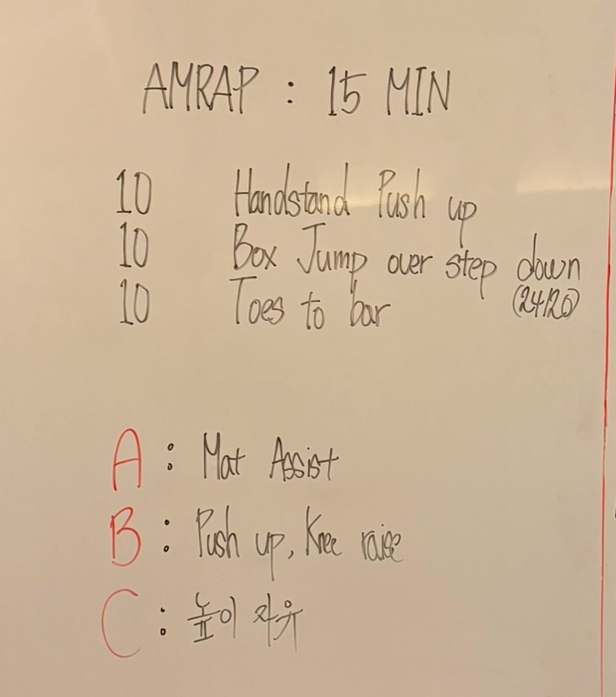 AMRAP : 15 MIN
10 Handstand Push up
10 Box Jump over step down
10 Toes to bar (24/20)
A : Mat Assist
B : Push up, Knee raise
C : 높이 자유